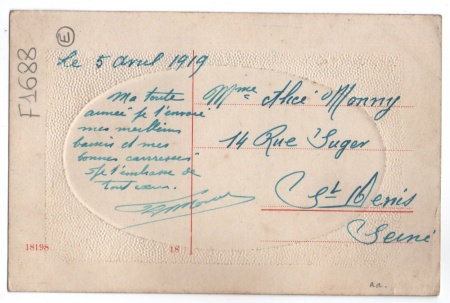 F1688
E
Le 5 Avril 1919
Ma toute
aimée je t'envoie
mes meilleurs
baisers et mes
bonnes carresses
Je t'embrasse de
tout cœur.
Mme Alice Monny
14 Rue Suger
St Denis
Seine
18198
18